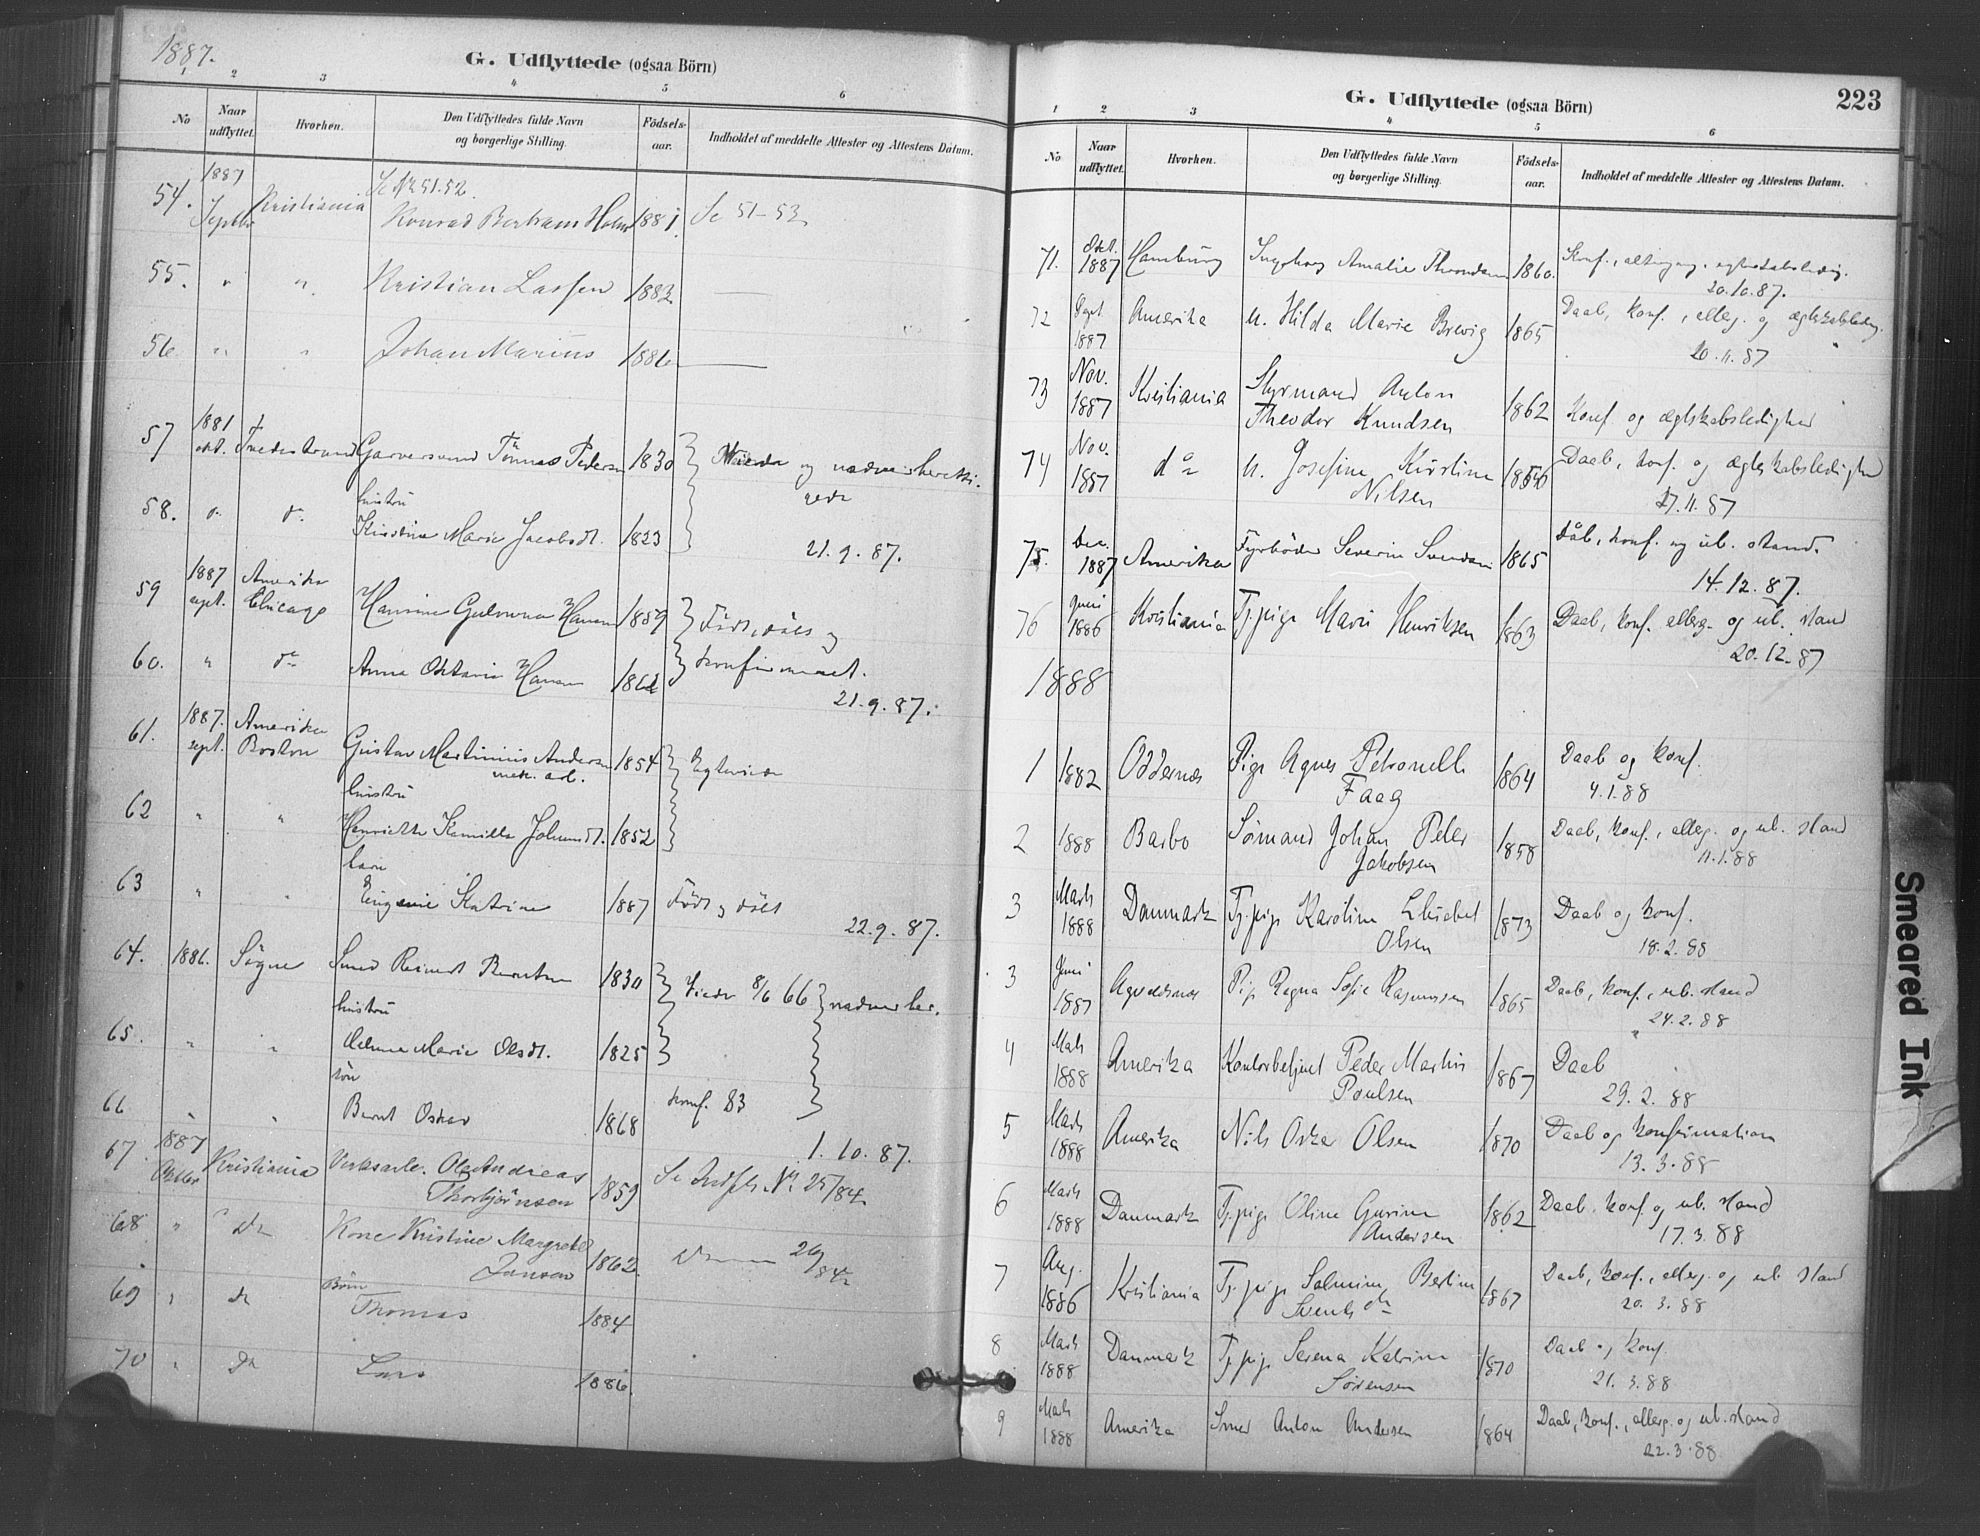 1887.
G. Udflyttede (ogsaa Börn)
1 2 3 4 5 6
No
Naar udflyttet.
Hvorhen.
Den Udflyttedes fulde Navn og borgerlige Stilling.
Födsels-aar.
Indholdet af meddelte Attester og Attestens Datum.
Se No 51.52.
54. 1887 Septbr Kristiania Konrad Bertram Holm 1881. Se 51-53
55. " " Kristian Lassen 1883 —
56 " " Johan Marius 1886 —
57 1881 okt. Tvedestrand Garversvend Tönnes Pedersen 1830 og nadverberetti-
gede
hustru
58. do. do. Kirstine Marie Jacobsdt. 1823
21.9.87.
59 1887 sept. Amerika Chicago Hansine Gulowna Hansen 1859 Födt, döbt og
60. " do Anna Oktavia Hansen 1862 konfirmeret.
21.9.87.
61. 1887. sept. Amerika Boston Gustav Martinius Andersen 1854 Egteviede
mek. arb.
hustru
62 " " Henriette Kamilla Johnsdt. 1852
barn
63 " " Eugenie Katrine 1887 Födt og döbt
22.9.87.
64. 1886. Sögne Smed Reinert Berntsen 1830 Viede 8/6 66 nadverber.
hustru
65. " " Helene Marie Olsdt. 1825
sön
66 " " Bernt Oskar 1868 konf. 83
1.10.87.
67. 1887 Oktbr Kristiania Verksarb. Ole Andreas
Thorbjörnsen 1859 Se Indfl. No 25/84
68 " " do Kone Kristine Margrete
Jensen 1862. do — 26/84
Börn
69 " do Thomas 1884
70 " do Lars 1886.
G. Udflyttede (ogsaa Börn)
223
1 2 3 4 5 6
No
Naar udflyttet.
Hvorhen.
Den Udflyttedes fulde Navn og borgerlige Stilling.
Födsels-aar.
Indholdet af meddelte Attester og Attestens Datum.
71. Okt. 1887 Hamburg Ingeborg Amalie Throndsen 1860. Konf., altergang, egteskabsledig.
20.10.87.
72 Sept 1887 Amerika u. Hilda Marie Brevig 1865 Daab, konf., alterg. og ægtskabsledig.
20.11.87
73 Nov. 1887 Kristiania Styrmand Anton
Theodor Knudsen 1862 Konf og ægtskabsledighed
74 Nov. 1887 do u. Josefine Kirstine
Nilsen Daab, konf. og ægtskabsledighed
27.11.87
75. Dec. 1887 Amerika Fyrböder Severin Svendsen 1865 Dåb, konf. og ub. stand.
14.12.87.
76 Juni 1886 Kristiania Tj.pige Marie Henriksen 1863 Daab, konf. alterg. og ub. stand
20.12.87
1888
1 1882 Oddernæs Pige Agnes Petronelle
Faag 1864 Daab og konf.
4.1.88
2 1888 Barbo Sømand Johan Peter
Jakobsen 1858 Daab, konf., alterg. og ub. stand
11.1.88
3 Marts 1888 Danmark Tj.pige Karoline Elisabet
Olsen 1873 Daab og konf.
18.2.88
3 Juni 1887 Pige Regna Sofie Rasmussen 1865 Daab, konf., ub. stand
24.2.88
4 Mats 1888 Amerika Kontorbetjent Peder Martin
Poulsen 1867 Daab
29.2.88
5 Marts 1888 Amerika Nils Oskar Olsen 1870 Daab og konfirmation
13.3.88
6 Marts 1888 Danmark Tj.pige Oline Gurine
Andersen 1862 Daab, konf og ub. stand
17.3.88
7 Aug. 1886 Kristiania Tj.pige Salmine Bertine
Svends dt 1867 Daab, konf., alterg. og ub. stand
20.3.88
8 Marts 1888 Danmark Tj.pige Serena Katrine
Sörensen 1870 Daab og konf.
21.3.88
9 Marts 1888 Amerika Smed Anton Andersen 1864 Daab, konf., alterg. og ub. stand
22.3.88
Smeared Ink